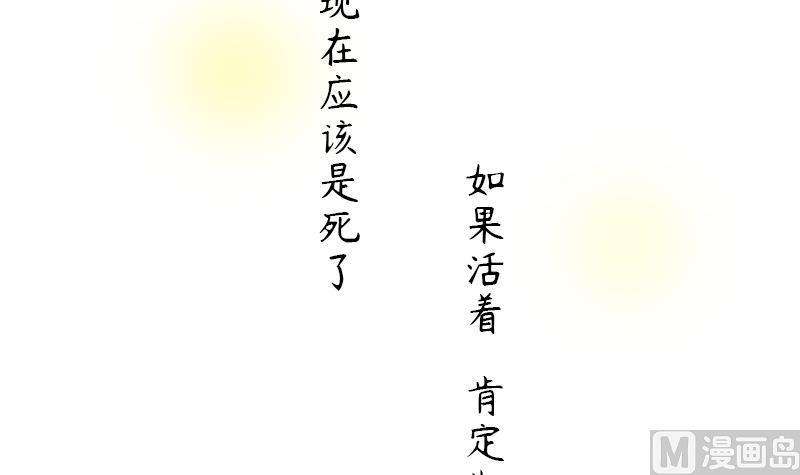 现在应该是死了
如果活着 肯定
漫画岛